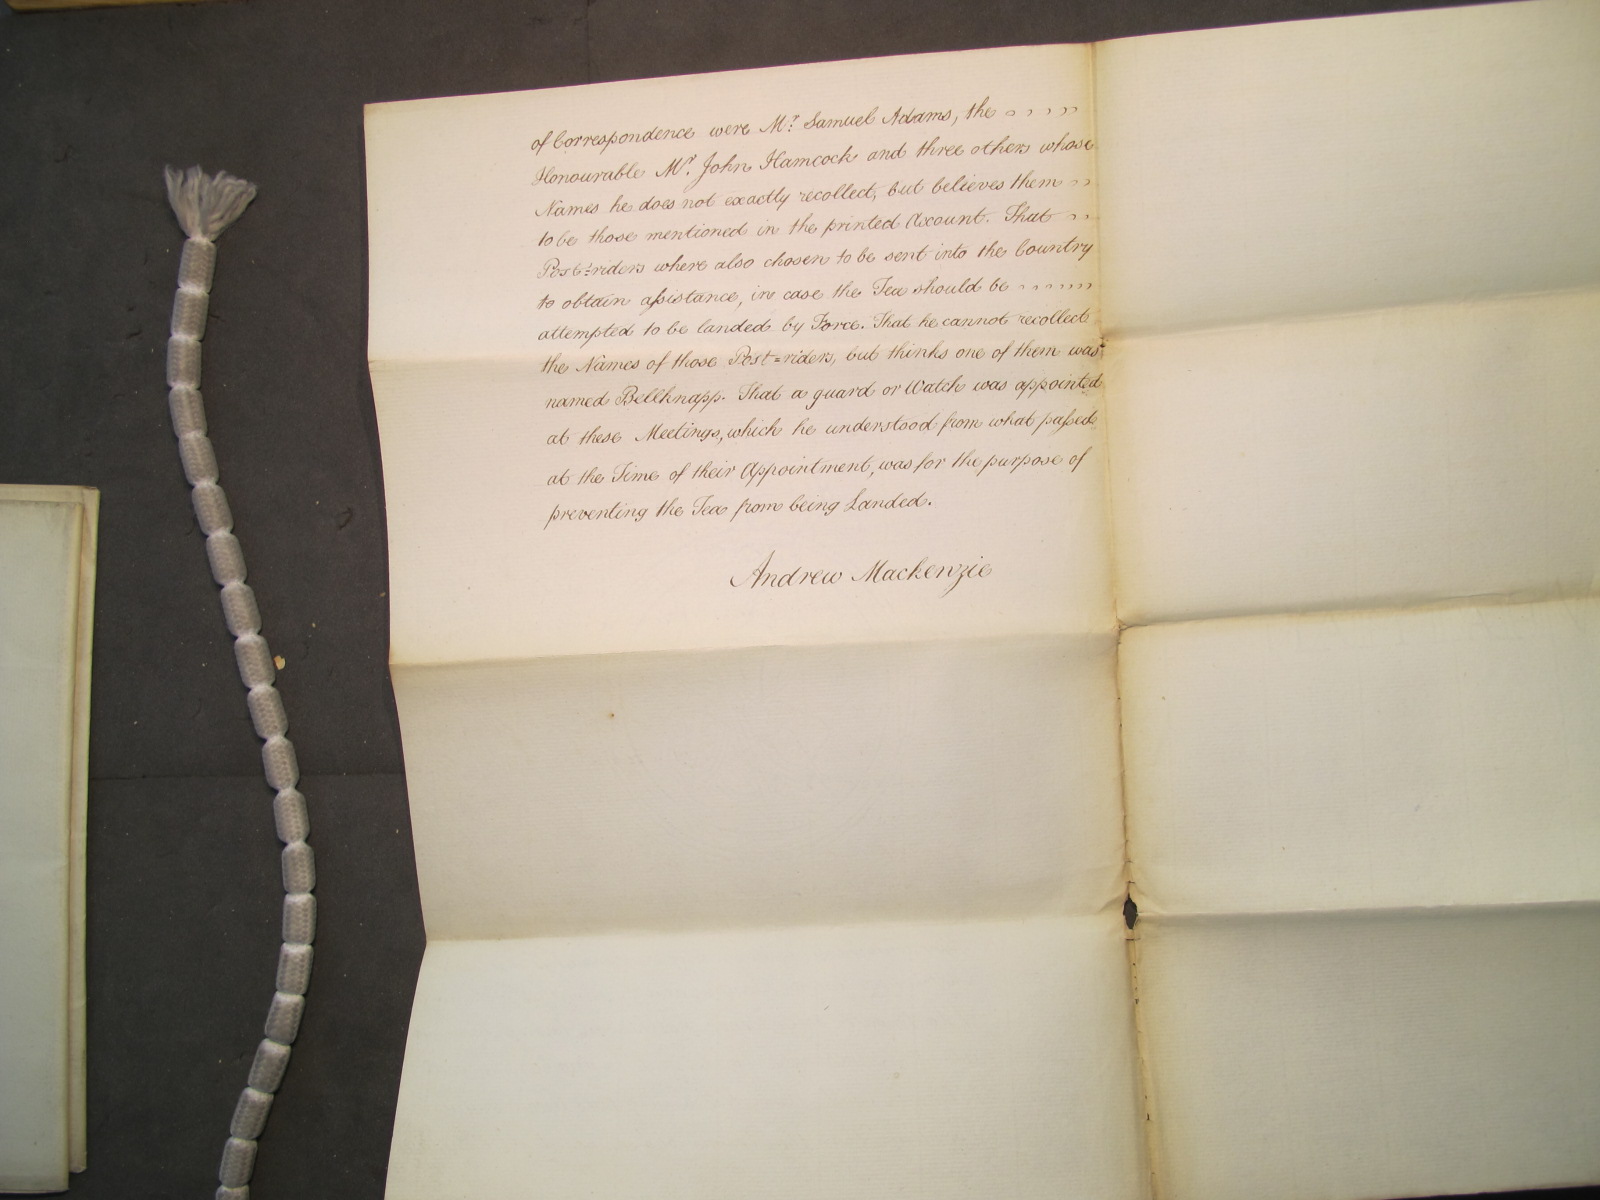 of Correspondence were Mr. Samuel Adams, the
Honourable Mr. John Hamcock and three others whose
Names he does not exactly recollect, but believes them
to be those mentioned in the printed Account. That
Post=riders where also chosen to be sent into the Country
to obtain assistance, in case the Tea should be
attempted to be landed by Force. That he cannot recollect
the Names of those Post=riders, but thinks one of them was
named Bellknapp. That a guard or Watch was appointed
at these Meetings, which he understood from what passed
at the Time of their Appointment, was for the purpose of
preventing the Tea from being Landed.
Andrew Mackenzie